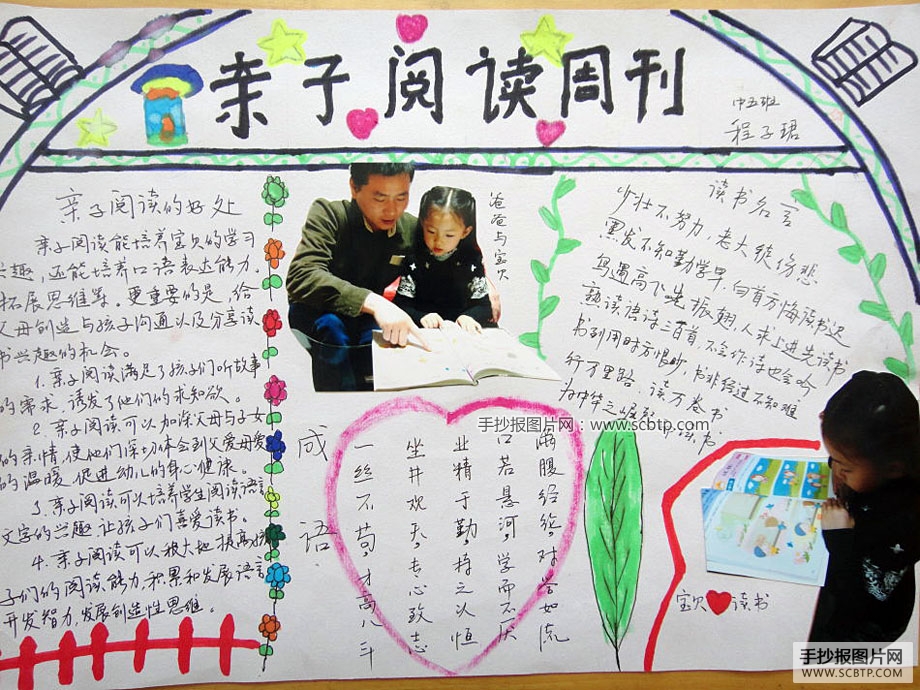 亲子阅读周刊
中五班
程子珺
亲子阅读的好处
亲子阅读能培养宝贝的学习
兴趣，还能培养口语表达能力，
拓展思维等。更重要的是，给
父母创造与孩子沟通以及分享读
书兴趣的机会。
1. 亲子阅读满足了孩子们听故事
的需求，诱发了他们的求知欲。
2. 亲子阅读可以加深父母与子女
的亲情，使他们深切体会到父爱母爱
的温暖，促进幼儿的身心健康。
3. 亲子阅读可以培养学生阅读语言
文字的兴趣，让孩子们喜爱读书。
4. 亲子阅读可以极大地提高孩
子们的阅读能力，积累和发展语言，
开发智力，发展创造性思维。
爸爸与宝贝
读书名言
少壮不努力，老大徒伤悲
黑发不知勤学早，白首方悔读书迟
鸟遇高飞先振翅，人求上进先读书
熟读唐诗三百首，不会作诗也会吟
书到用时方恨少，书非经过不知难
行万里路，读万卷书
为中华之崛起
书
手抄报图片网：www.scbtp.com
成语
满腹经纶，对答如流
口若悬河，学而不厌
业精于勤，持之以恒
坐井观天，专心致志
一丝不苟，才高八斗
宝贝读书
手抄报图片网
WWW.SCBTP.COM